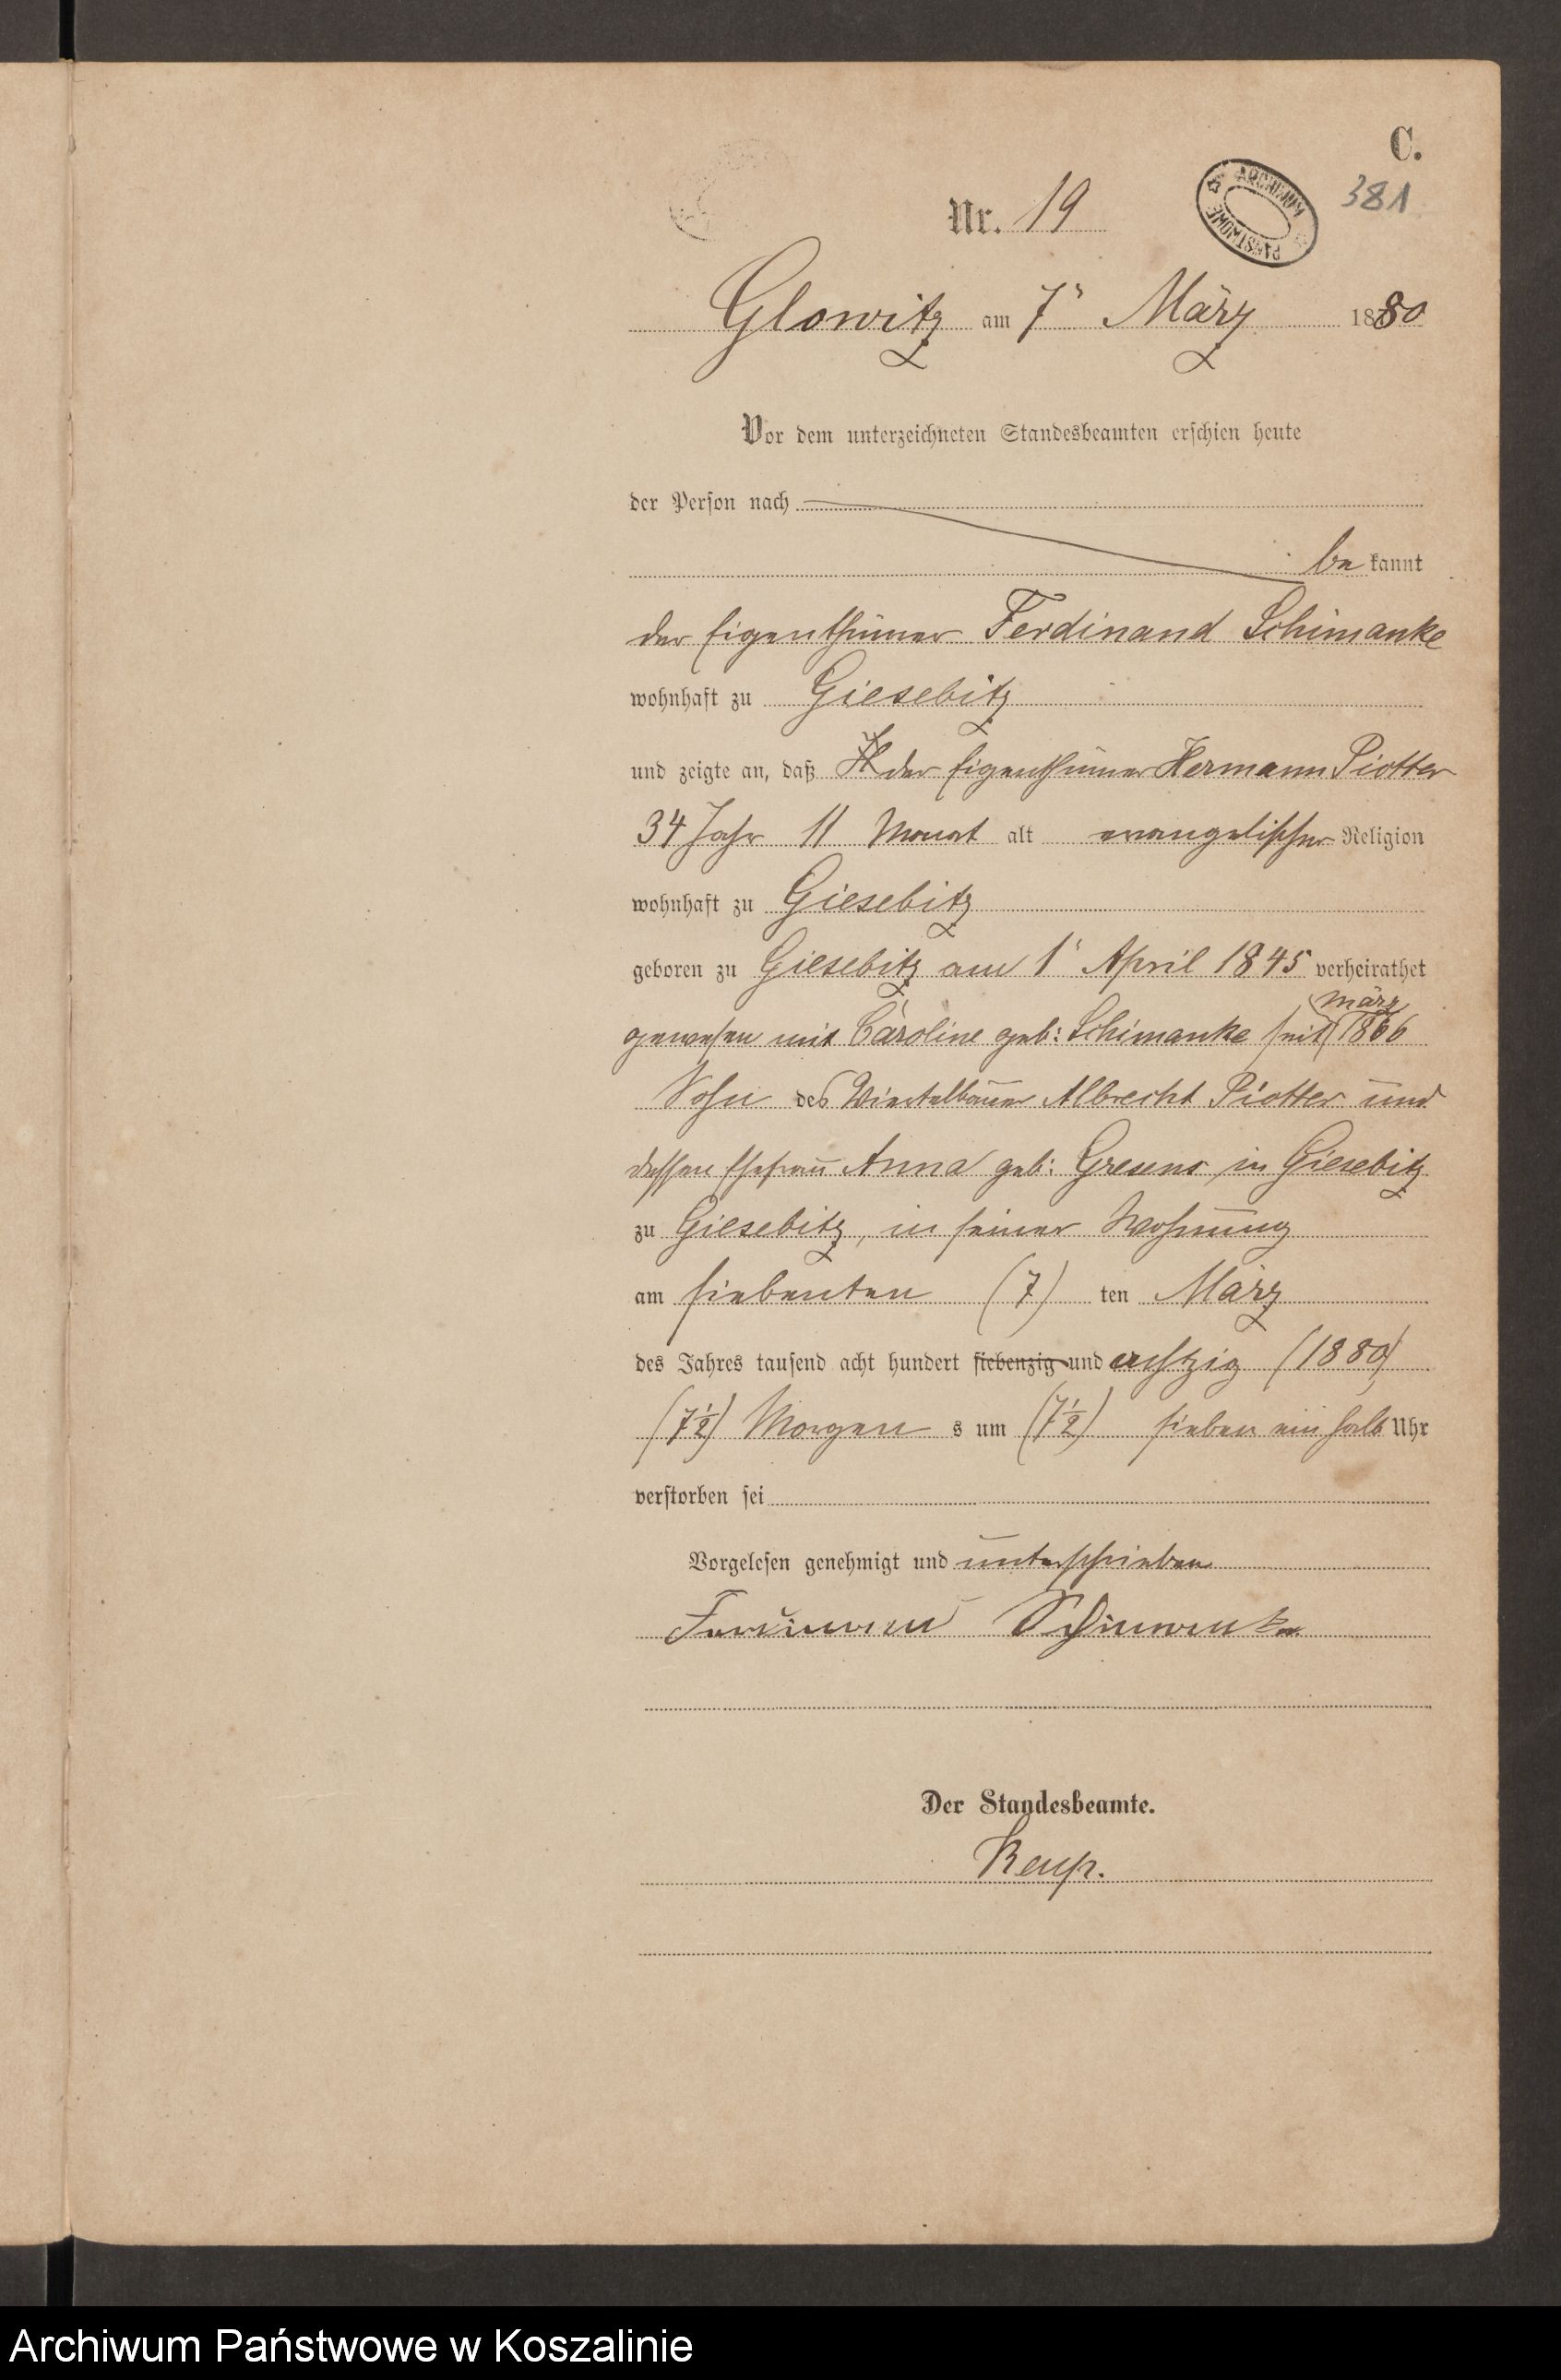 C.
ARCHIWUM PAŃSTWOWE
381
Nr. 19
Glowitz am 7" März 1880
Vor dem unterzeichneten Standesbeamten erschien heute
der Person nach
be kannt
der Eigenthümer Ferdinand Schimanke
wohnhaft zu Giesebitz
und zeigte an, daß der Eigenthümer Hermann Piotter
34 Jahr 11 Monat alt evangelischer Religion
wohnhaft zu Giesebitz
geboren zu Giesebitz am 1" April 1845 verheirathet
März
gewesen mit Caroline geb: Schimanke seit 1866
Sohn des Viertelbauer Albrecht Piotter und
dessen Ehefrau Anna geb: Gresens in Giesebitz
zu Giesebitz, in seiner Wohnung
am siebenten (7) ten März
des Jahres tausend acht hundert siebenzig und achtzig (1880)
(7½) Morgen s um (7½) sieben ein halb Uhr
verstorben sei
Vorgelesen genehmigt und unterschrieben
Ferdinand Schimanke
Der Standesbeamte.
Archiwum Państwowe w Koszalinie